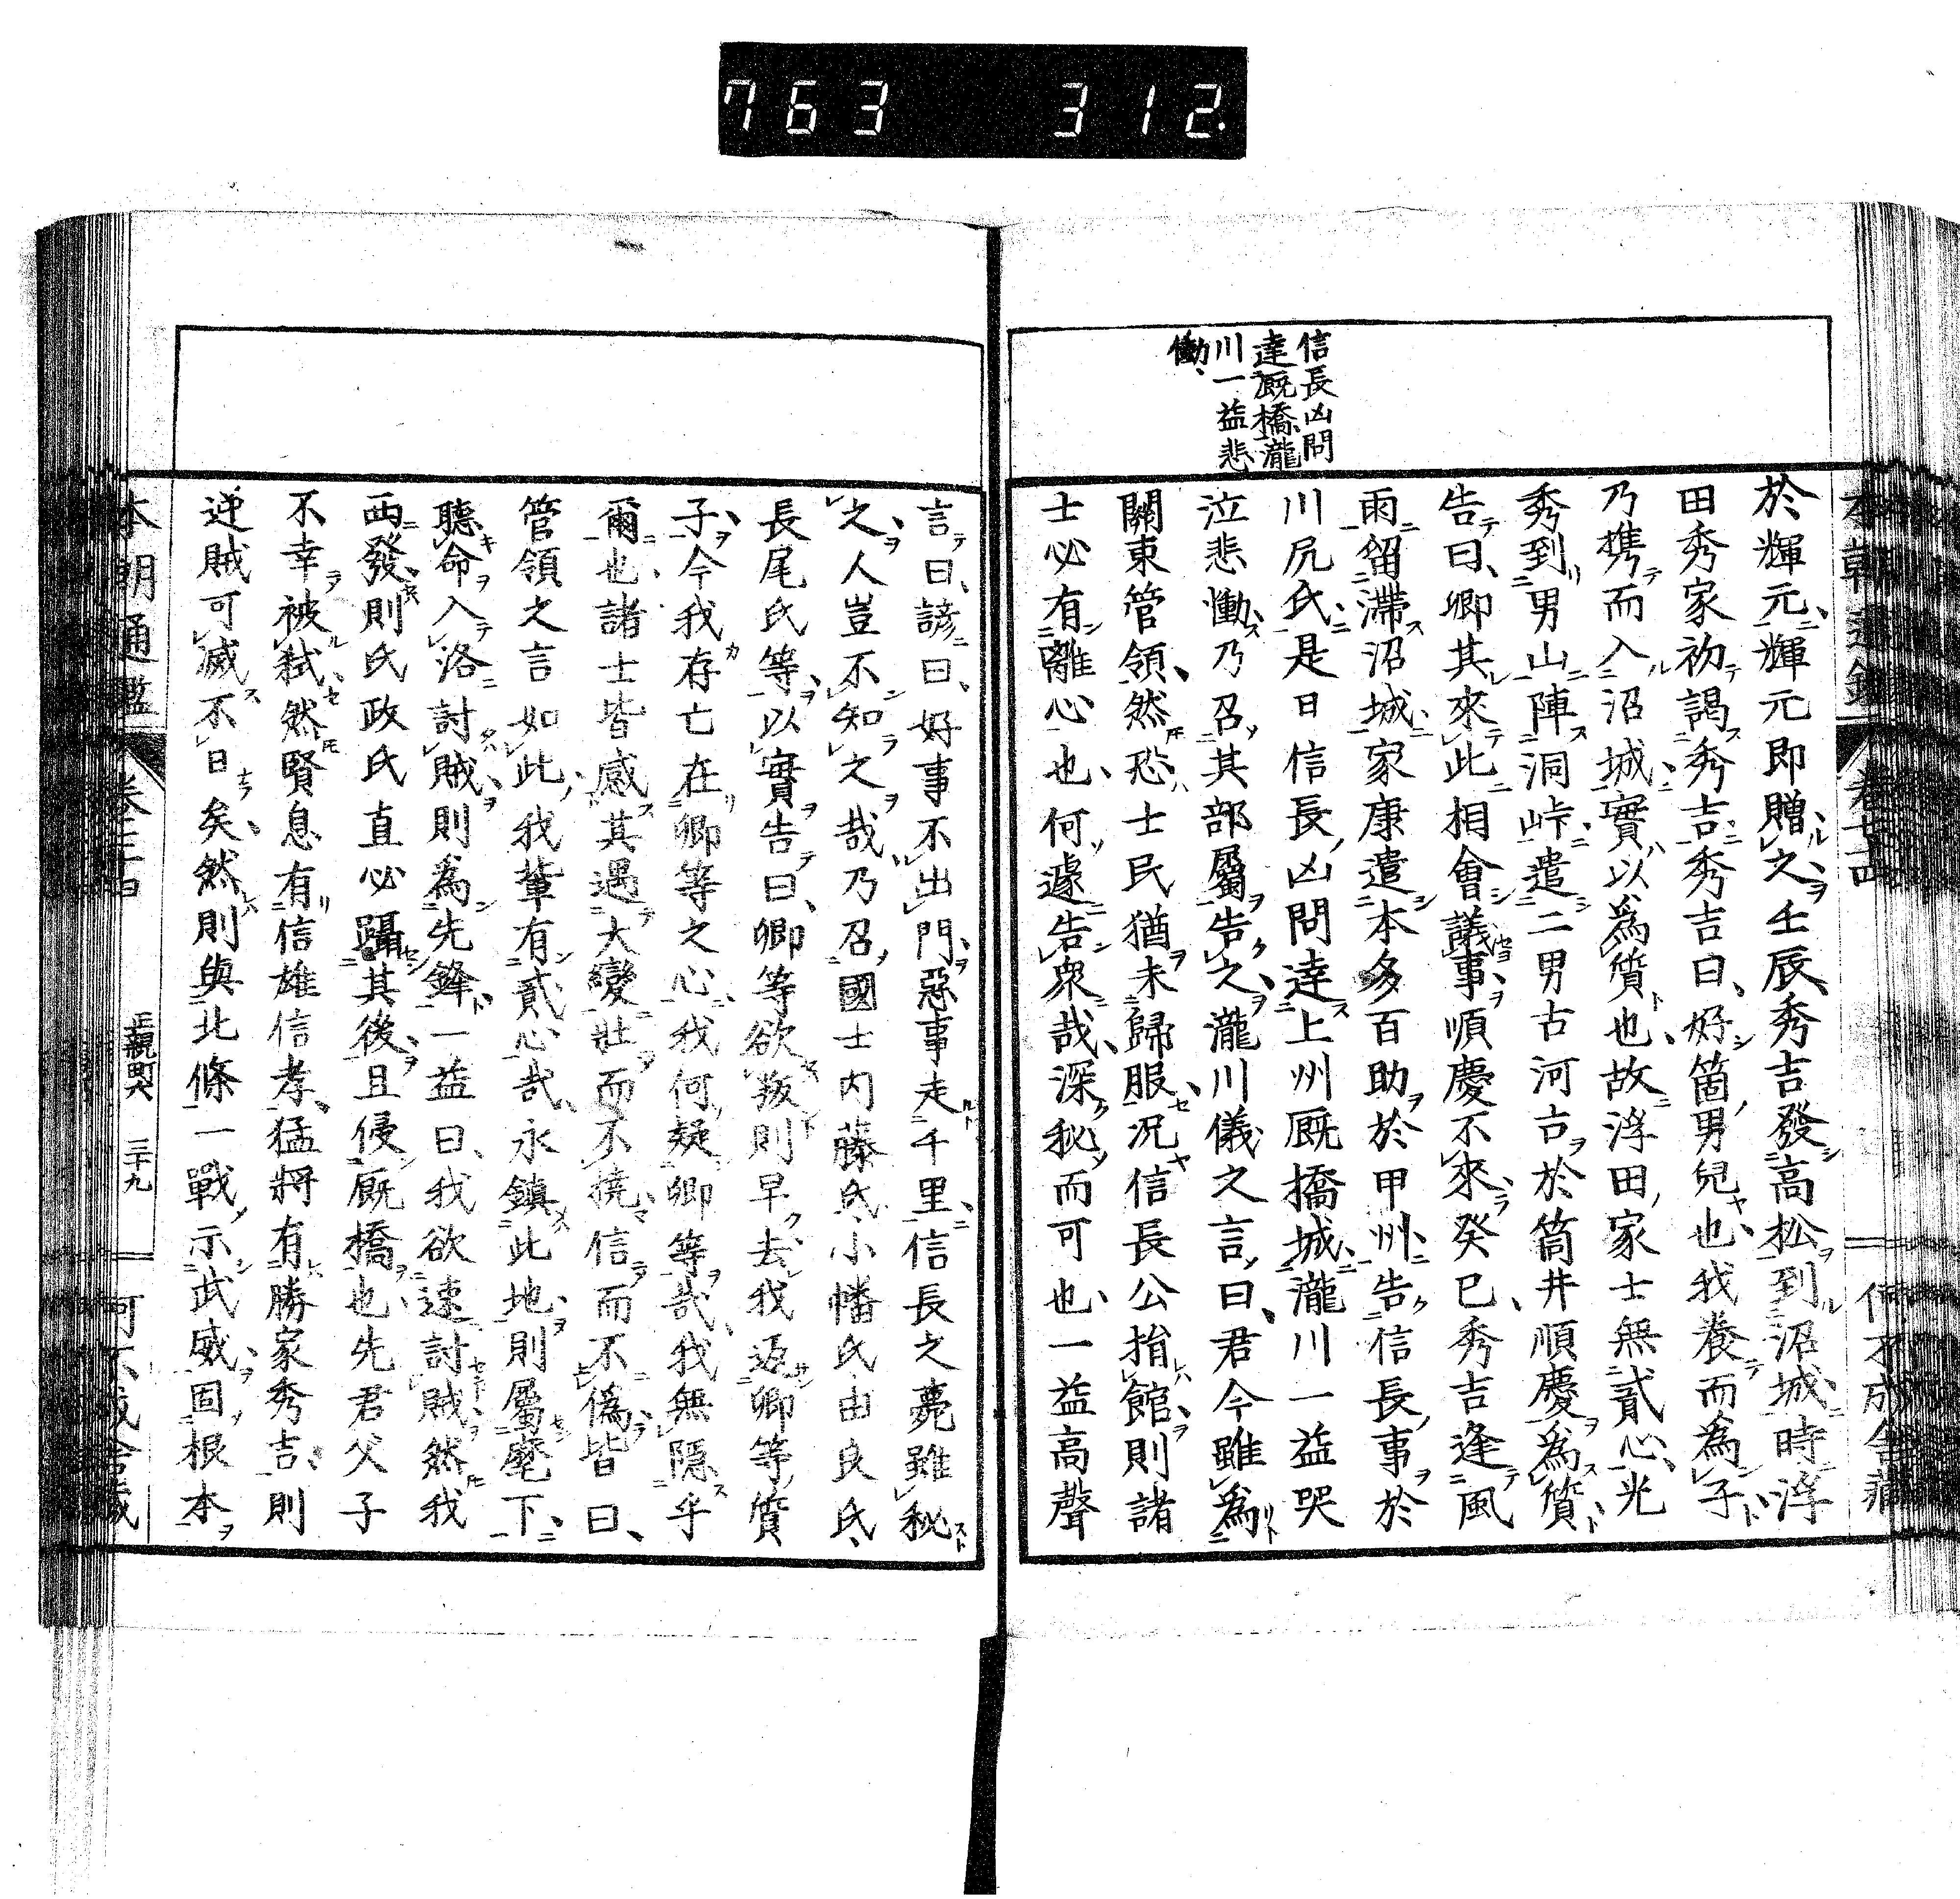 763 312.
信長凶問
達厩橋瀧
川一益悲
慟
於輝元輝元即贈之壬辰秀吉發高松到沼城時浮
田秀家初謁秀吉秀吉曰好箇男兒也我養而為子
乃携而入沼城實以為質也故浮田家士無貳心光
秀到男山陣洞峠遣二男古河古於筒井順慶為質
告曰卿其來此相會議事順慶不來癸巳秀吉逢風
雨留滯沼城家康遣本多百助於甲州告信長事於
川尻氏是日信長凶問達上州厩橋城瀧川一益哭
泣悲慟乃召其部屬告之瀧川儀之言曰君今雖為
關東管領然恐士民猶未歸服況信長公捐館則諸
士必有離心也何遽告衆哉深秘而可也一益高聲
言曰諺曰好事不出門惡事走千里信長之薨雖秘
之人豈不知之哉乃召國士内藤氏小幡氏由良氏
長尾氏等以實告曰卿等欲叛則早去我返卿等質
子今我存亡在卿等之心我何疑卿等哉我無隱乎
爾也諸士皆感其遇大變壯而不撓信而不偽皆曰
管領之言如此我輩有貳心哉永鎮此地則屬麾下
聽命入洛討賊則為先鋒一益曰我欲速討賊然我
西發則氏政氏直必躡其後且侵厩橋也先君父子
不幸被弑然賢息有信雄信孝猛將有勝家秀吉則
逆賊可滅不日矣然則與北條一戰示武威固根本
本朝通鑑 卷 正親町 三十九